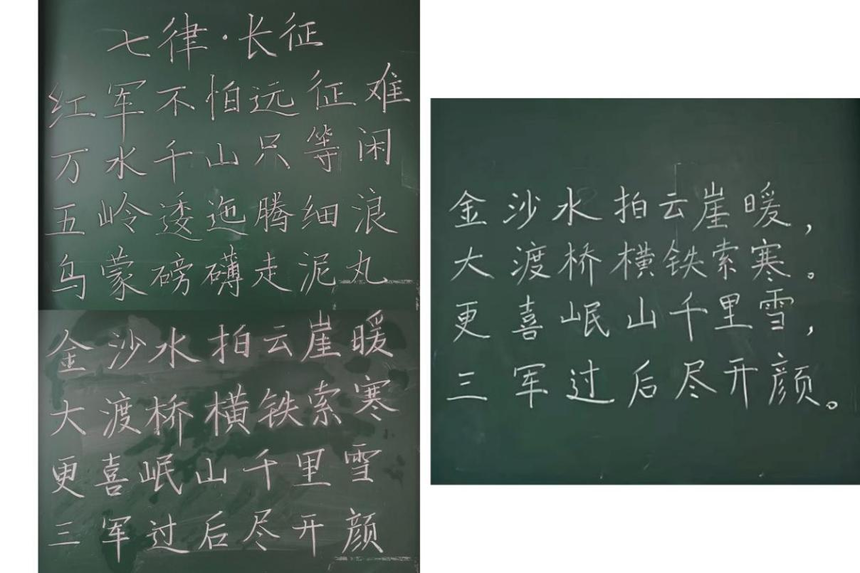 七律·长征
红军不怕远征难
万水千山只等闲
五岭逶迤腾细浪
乌蒙磅礴走泥丸
金沙水拍云崖暖
大渡桥横铁索寒
更喜岷山千里雪
三军过后尽开颜
金沙水拍云崖暖,
大渡桥横铁索寒。
更喜岷山千里雪,
三军过后尽开颜。